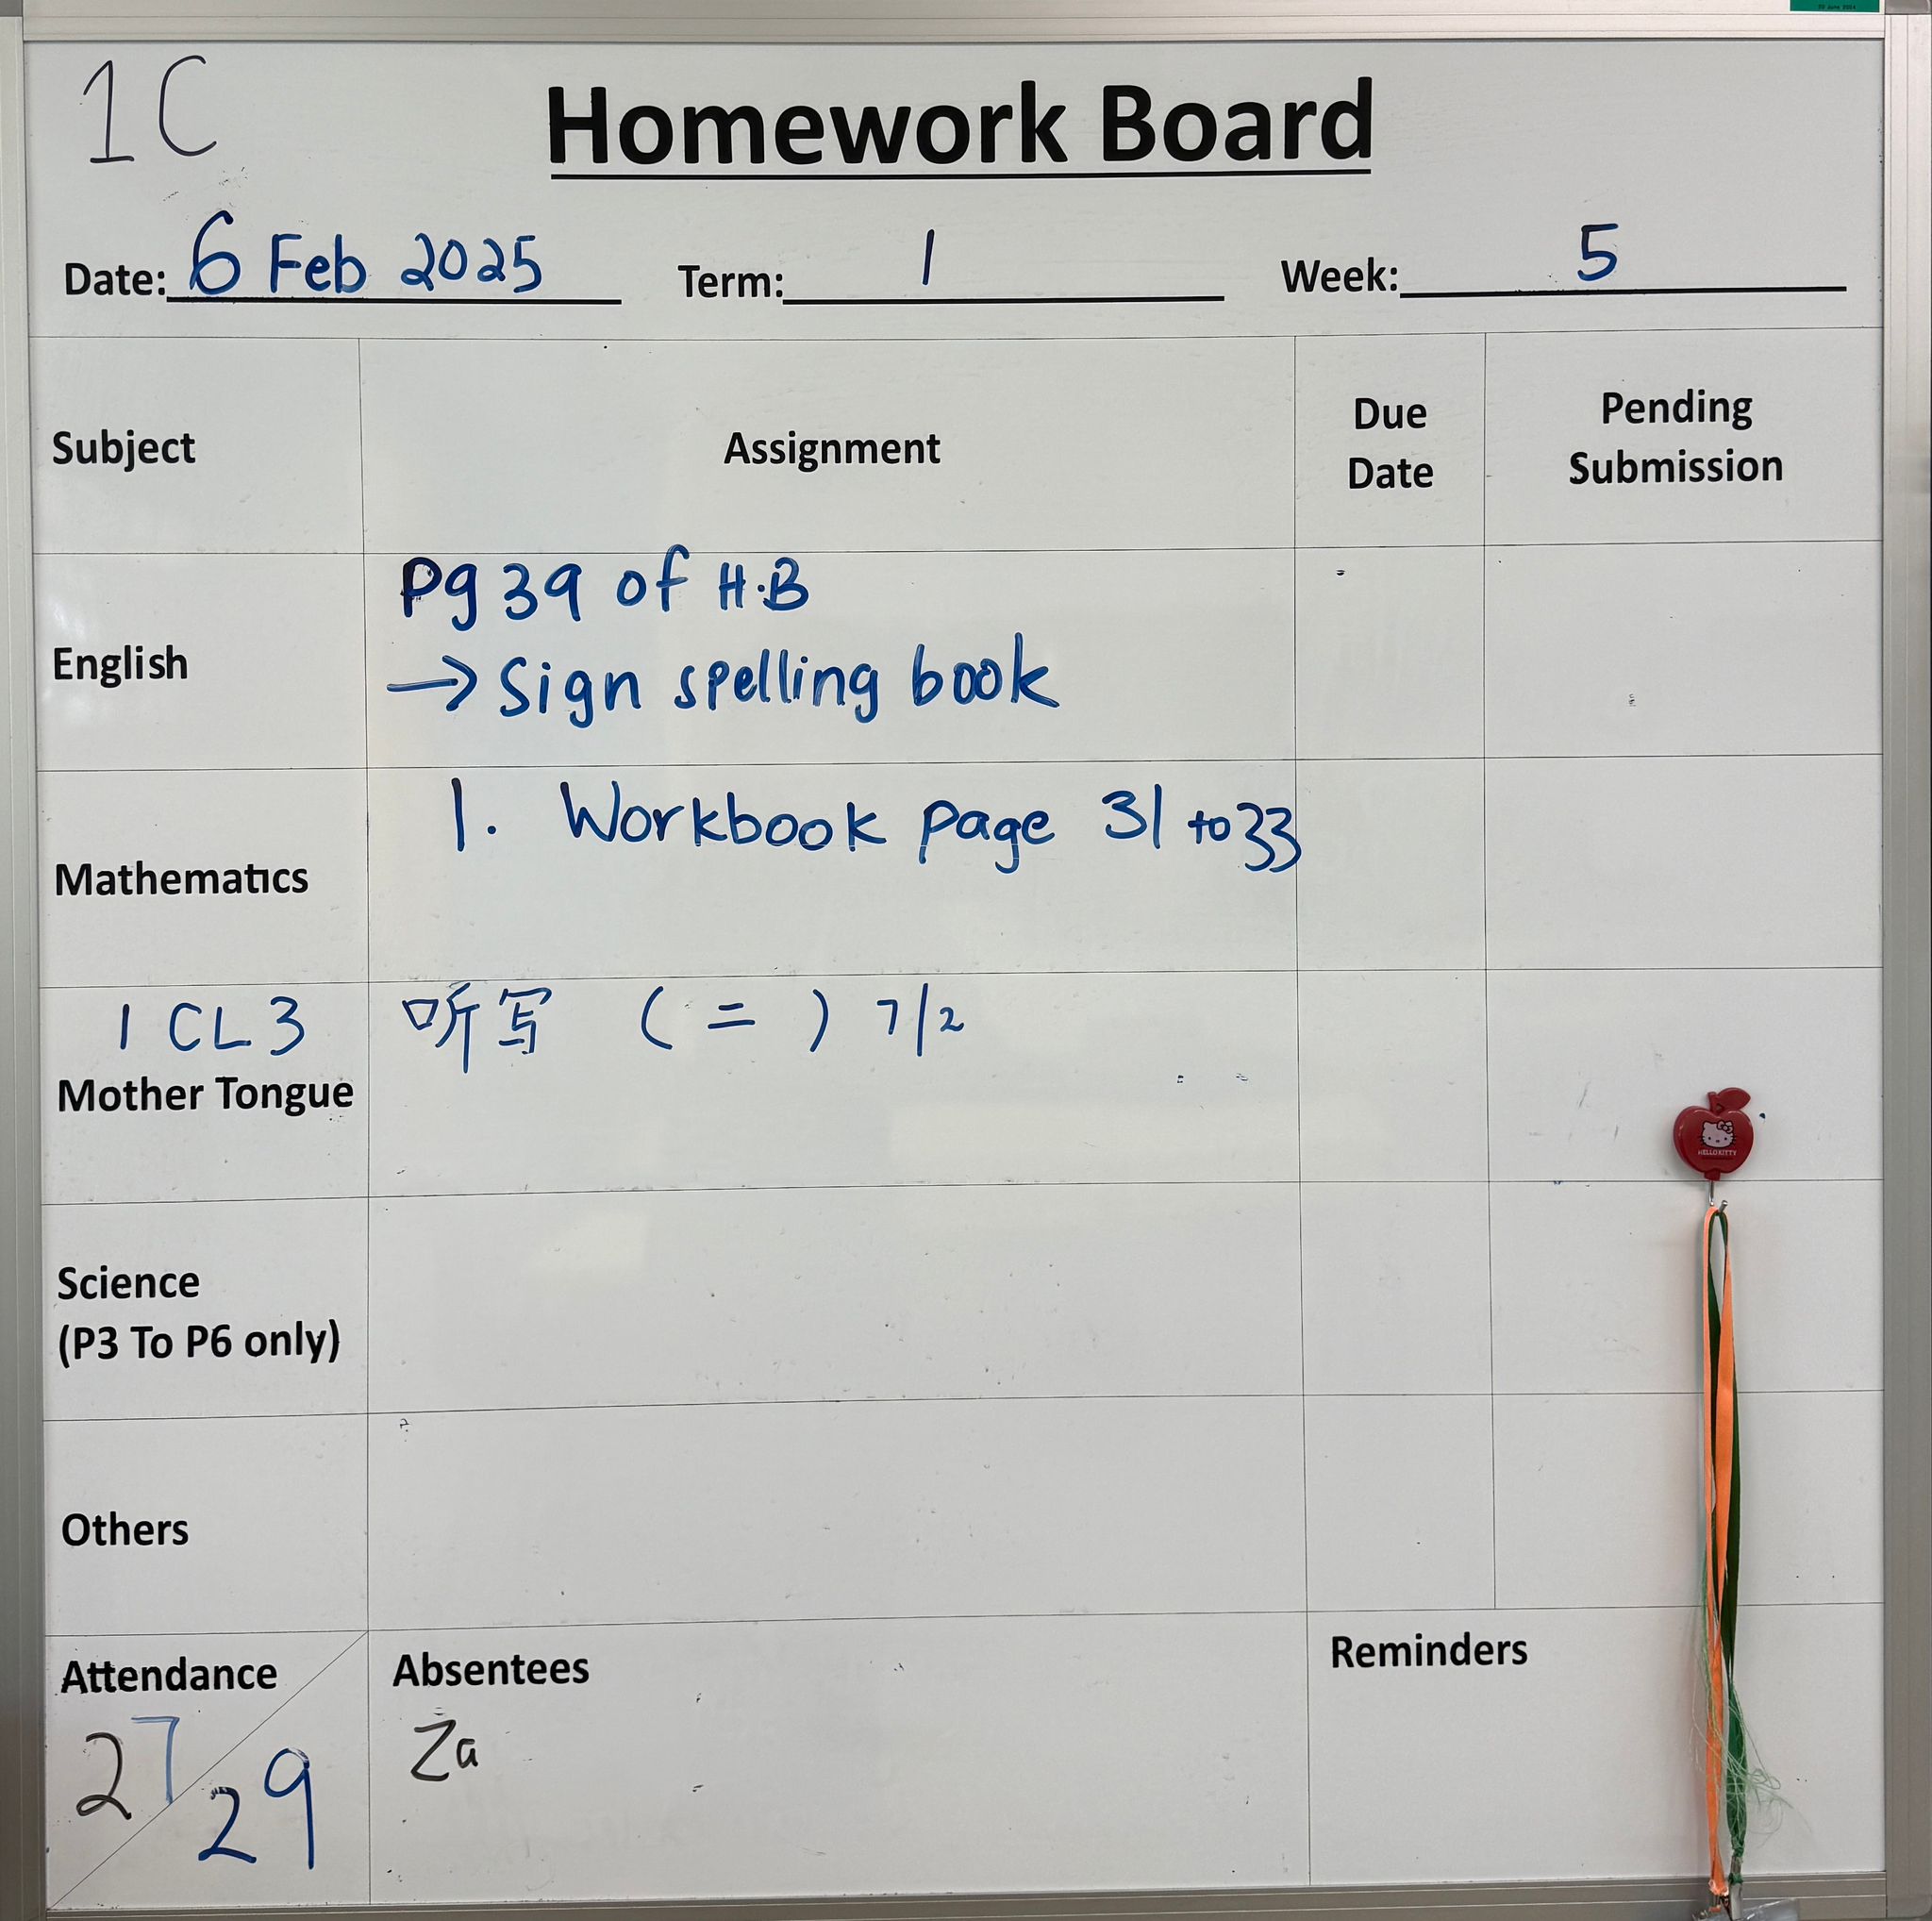 1C
Homework Board
Date: 6 Feb 2025 Term: 1 Week: 5
Subject Assignment Due Date Pending Submission
English
Pg 39 of H.B
→ Sign spelling book
Mathematics
1. Workbook page 31 to 33
1 CL 3
Mother Tongue
听写 (二) 7/2
Science
(P3 To P6 only)
Others
Attendance
27/29
Absentees
Za
Reminders
HELLO KITTY